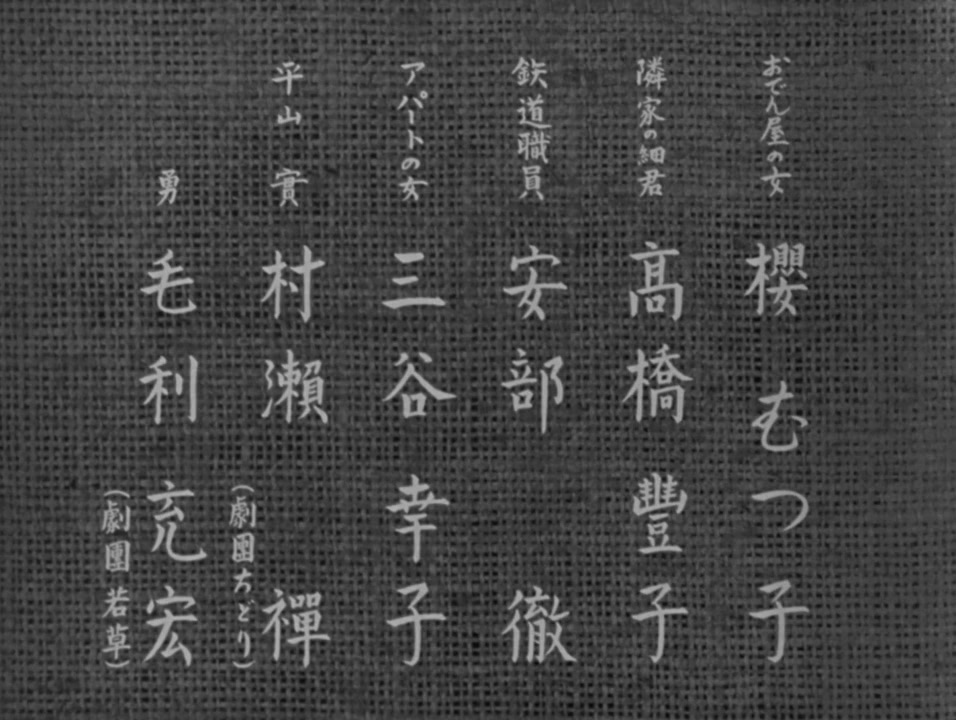 おでん屋の女 櫻 むつ子
隣家の細君 髙橋 豐子
鉄道職員 安部 徹
アパートの女 三谷 幸子
平山 實 村瀨 禪
(劇團ちどり)
勇 毛利 充宏
(劇團若草)